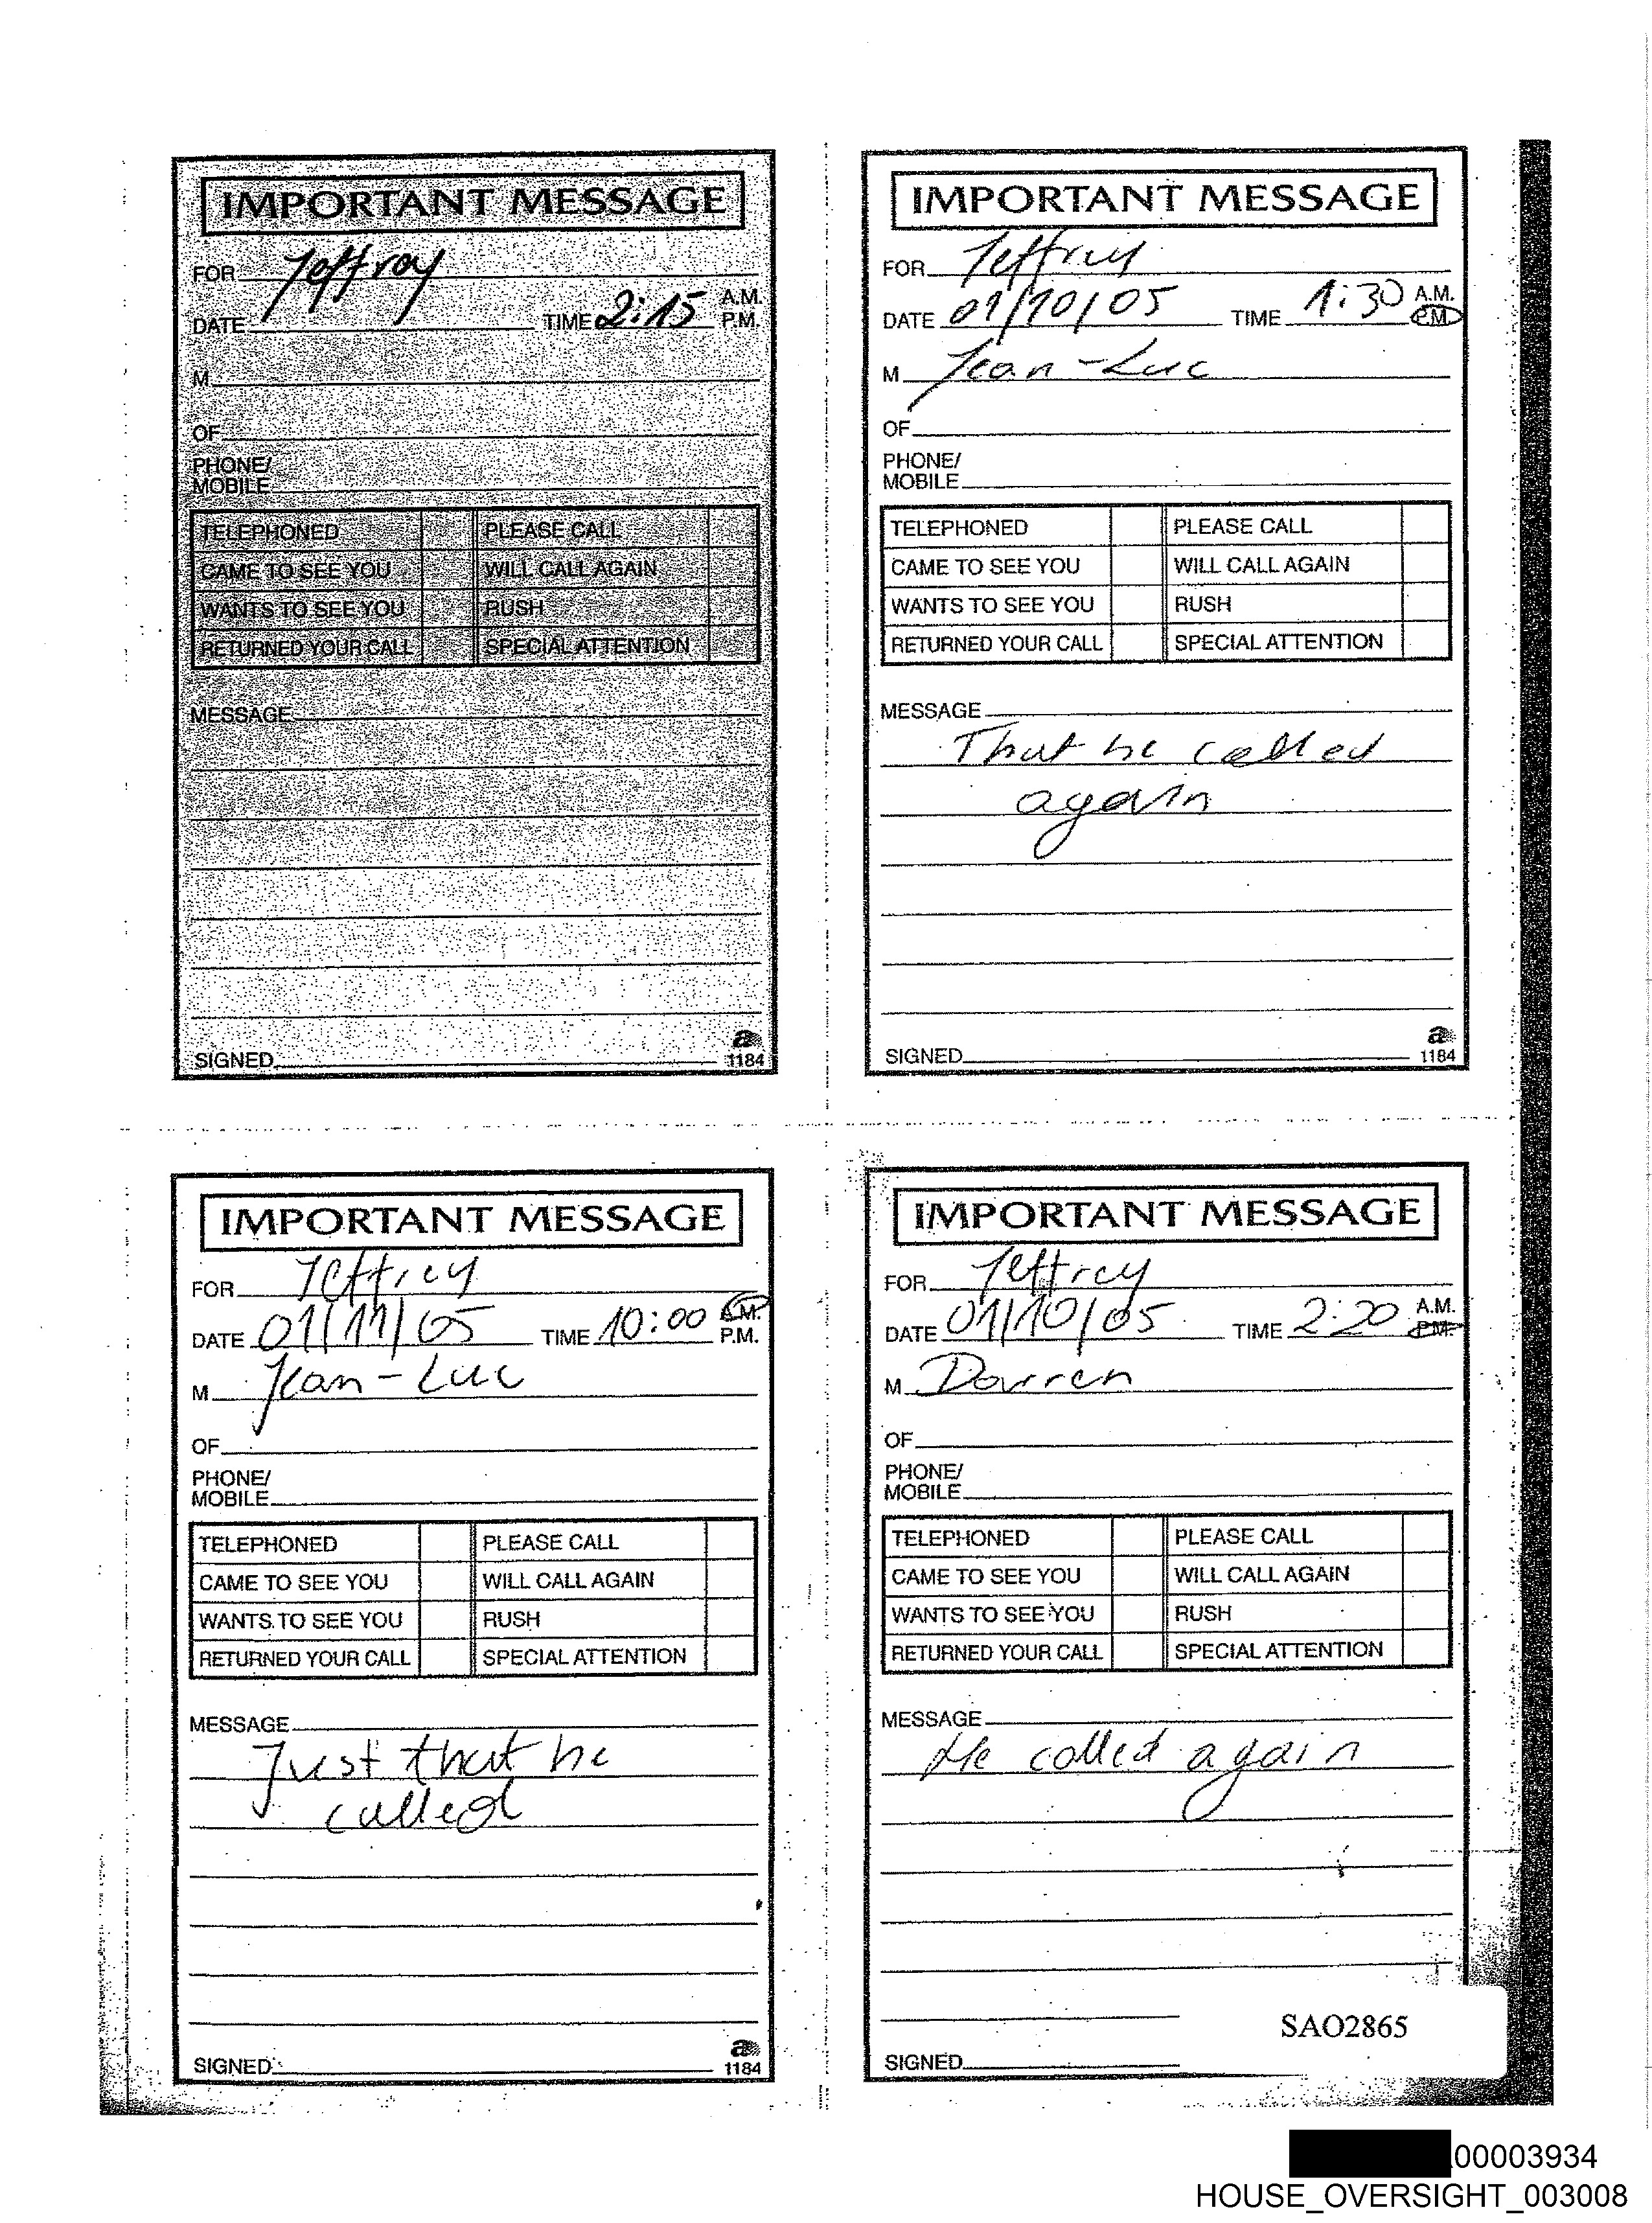 IMPORTANT MESSAGE
FOR Jeffrey
DATE TIME 2:15 A.M. P.M.
M
OF
PHONE/
MOBILE
TELEPHONED PLEASE CALL
CAME TO SEE YOU WILL CALL AGAIN
WANTS TO SEE YOU RUSH
RETURNED YOUR CALL SPECIAL ATTENTION
MESSAGE
SIGNED
a
1184
IMPORTANT MESSAGE
FOR Jeffrey
DATE 01/10/05 TIME 1:30 A.M. P.M.
M Jean-Luc
OF
PHONE/
MOBILE
TELEPHONED PLEASE CALL
CAME TO SEE YOU WILL CALL AGAIN
WANTS TO SEE YOU RUSH
RETURNED YOUR CALL SPECIAL ATTENTION
MESSAGE
That he called
again
SIGNED
a
1184
IMPORTANT MESSAGE
FOR Jeffrey
DATE 01/11/05 TIME 10:00 A.M. P.M.
M Jean-Luc
OF
PHONE/
MOBILE
TELEPHONED PLEASE CALL
CAME TO SEE YOU WILL CALL AGAIN
WANTS TO SEE YOU RUSH
RETURNED YOUR CALL SPECIAL ATTENTION
MESSAGE
Just that he
called
SIGNED
a
1184
IMPORTANT MESSAGE
FOR Jeffrey
DATE 01/10/05 TIME 2:20 A.M. P.M.
M Darren
OF
PHONE/
MOBILE
TELEPHONED PLEASE CALL
CAME TO SEE YOU WILL CALL AGAIN
WANTS TO SEE YOU RUSH
RETURNED YOUR CALL SPECIAL ATTENTION
MESSAGE
He called again
SIGNED
SAO2865
00003934
HOUSE_OVERSIGHT_003008